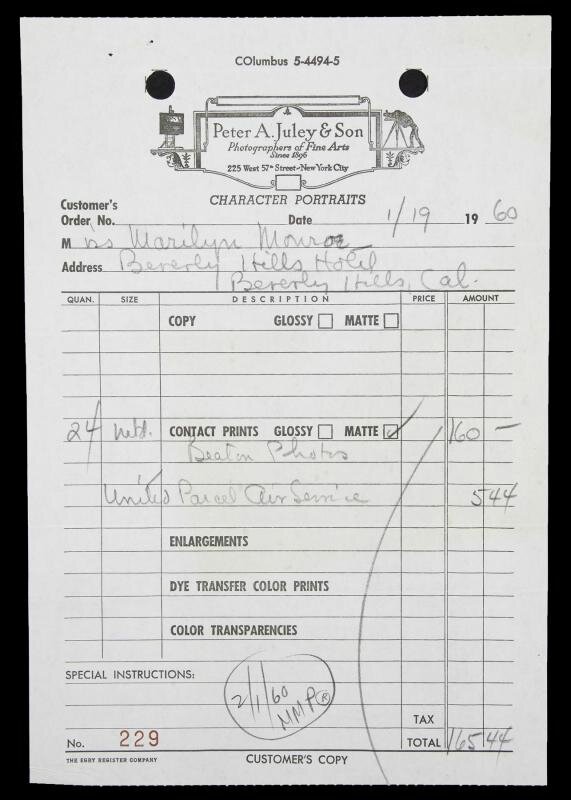 COlumbus 5-4494-5
Peter A. Juley & Son
Photographers of Fine Arts
Since 1896
225 West 57th Street - New York City
CHARACTER PORTRAITS
Customer's
Order No. Date 1/19 19 60
M iss Marilyn Monroe
Address Beverly Hills Hotel
Beverly Hills, Cal.
QUAN. SIZE DESCRIPTION PRICE AMOUNT
COPY GLOSSY MATTE
24 mtd. CONTACT PRINTS GLOSSY MATTE ✓ 160 —
Beaton Photos
United Parcel Air Service 5 44
ENLARGEMENTS
DYE TRANSFER COLOR PRINTS
COLOR TRANSPARENCIES
SPECIAL INSTRUCTIONS:
2/1/60
MMP ®
TAX
No. 229 TOTAL 165 44
THE EGRY REGISTER COMPANY CUSTOMER'S COPY